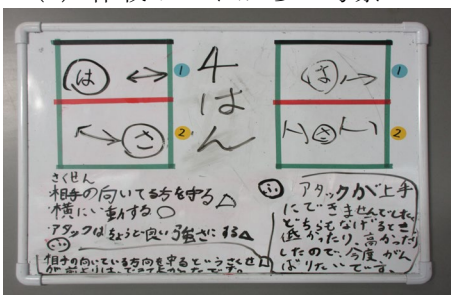 は
1
4
はん
は
1
さ
2
さ
2
さくせん
・相手の向いてる方を守る△
・横にい動する○
・アタックはちょうど良い強さにする△
相手の向いている方向を守るというさくせ
アタックが上手
にできませんでした。
どちらもなげるとき
低かったり、高かったり
したので、今度がん
ばりたいです。